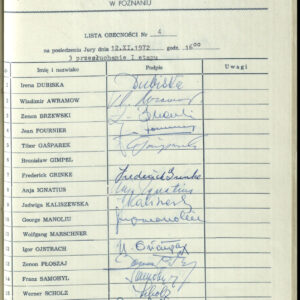 W POZNANIU
LISTA OBECNOŚCI Nr 4
na posiedzeniu Jury dnia 12.XI.1972 godz. 16oo
3 przesłuchanie I etapu
Imię i nazwisko Podpis Uwagi
1 Irena DUBISKA Dubiska
2 Wladimir AWRAMOW
3 Zenon BRZEWSKI
4 Jean FOURNIER
5 Tibor GAŠPAREK
6 Bronisław GIMPEL
7 Frederick GRINKE Frederick Grinke
8 Anja IGNATIUS Anja Ignatius
9 Jadwiga KALISZEWSKA
10 George MANOLIU
11 Wolfgang MARSCHNER
12 Igor OJSTRACH
13 Zenon PŁOSZAJ
14 Franz SAMOHYL
15 Werner SCHOLZ Scholz